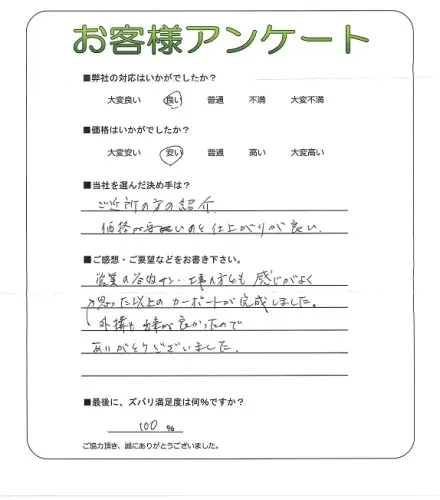 お客様アンケート
■弊社の対応はいかがでしたか?
大変良い 良い 普通 不満 大変不満
■価格はいかがでしたか?
大変安い 安い 普通 高い 大変高い
■当社を選んだ決め手は?
ご近所の方の紹介
価格が安いのと仕上がりが良い.
■ご感想・ご要望などをお書き下さい。
営業の谷内サン・工事の方とも 感じがよく
思った以上の カーポートが完成しました。
外構も 出来が良かったので
ありがとうございました.
■最後に、ズバリ満足度は何%ですか?
100 %
ご協力頂き、誠にありがとうございました。